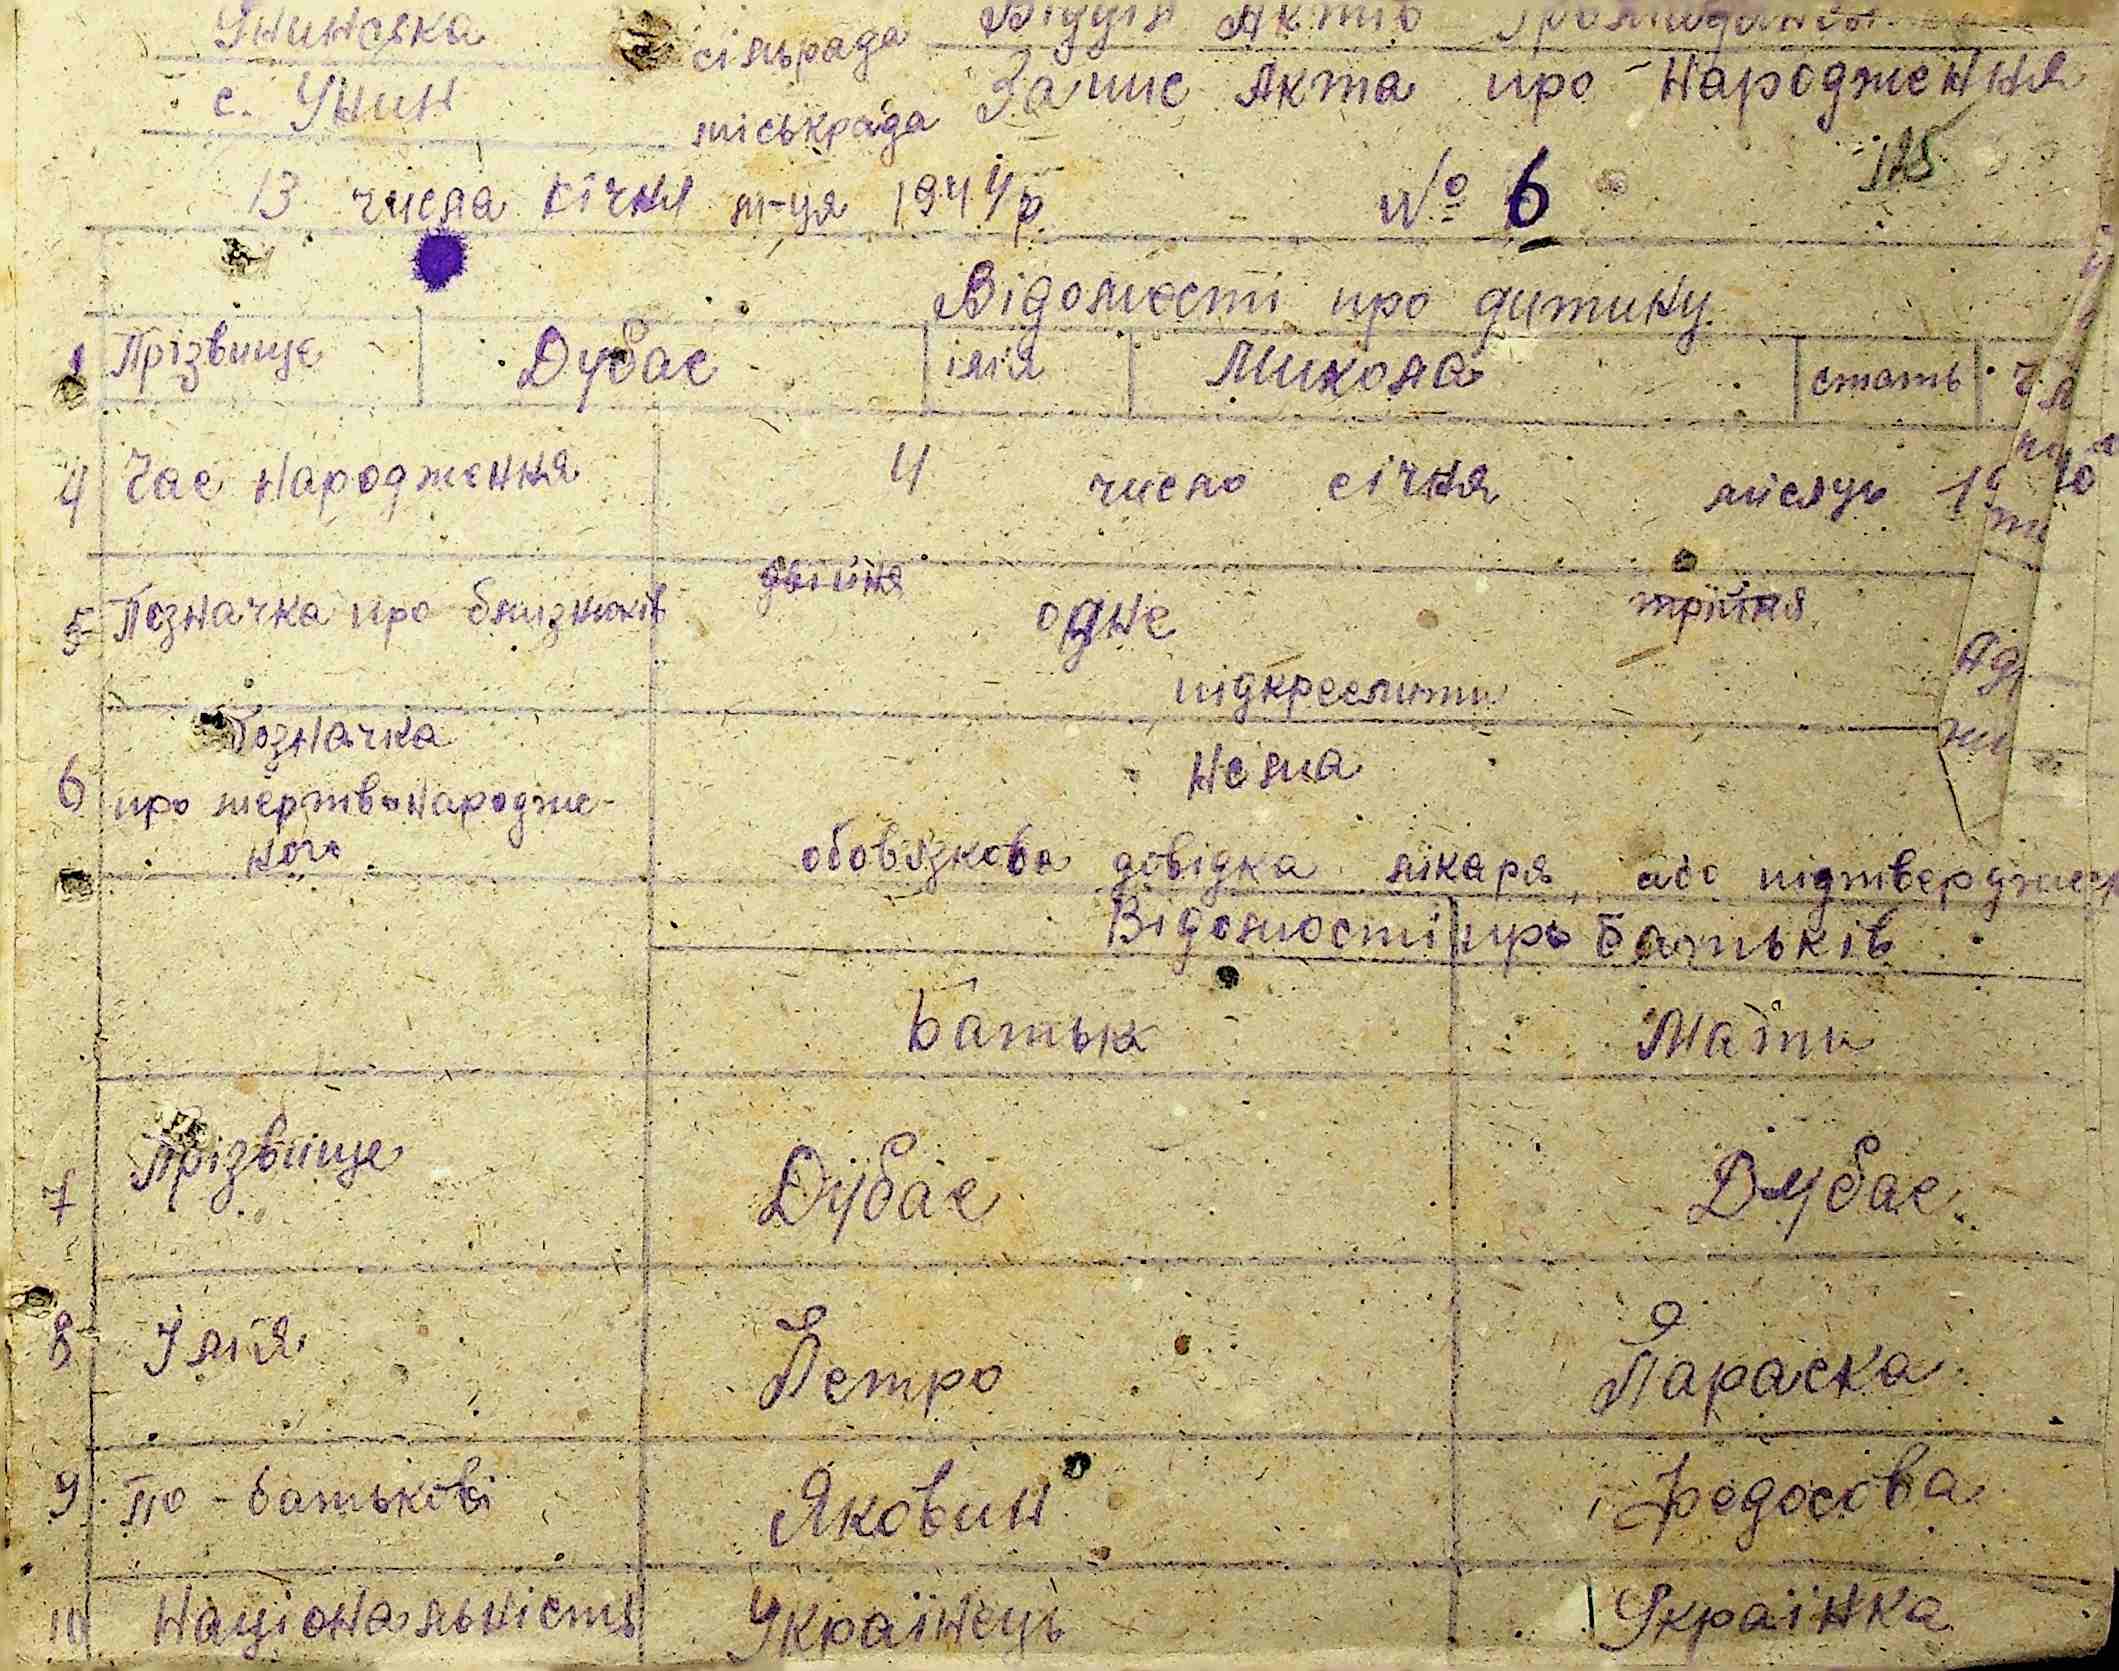 Унинська сільрада Відділ Актів Громадянсь
с. Унин міськрада Запис Акта про Народження
125
13 числа січня м-ця 1944 р. № 6
Відомості про дитину
1 Прізвище Дубас імія Микола стать Ч
4 Час Народження 4 число січня місяць 19
5 Позначка про близнюків двійня одне трійня
підкреслити
6 Позначка
про мертвонародже-
ного
Нема
обов'язкова довідка лікаря, або підтвердження
Відомості про батьків
Батько Мати
7 Прізвище Дубас Дубас
8 Імія Петро Параска
9 По-батькові Яковин Федосова
10 Національність Українець Українка